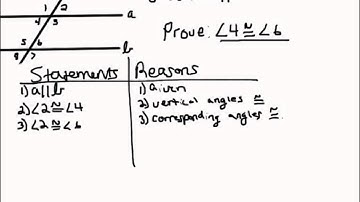 1 2
4 3 a
Prove: ∠4 ≅ ∠6
5 6 b
8 7
Statements Reasons
1) a||b 1) Given
2) ∠2 ≅ ∠4 2) vertical angles ≅
3) ∠2 ≅ ∠6 3) corresponding angles ≅.